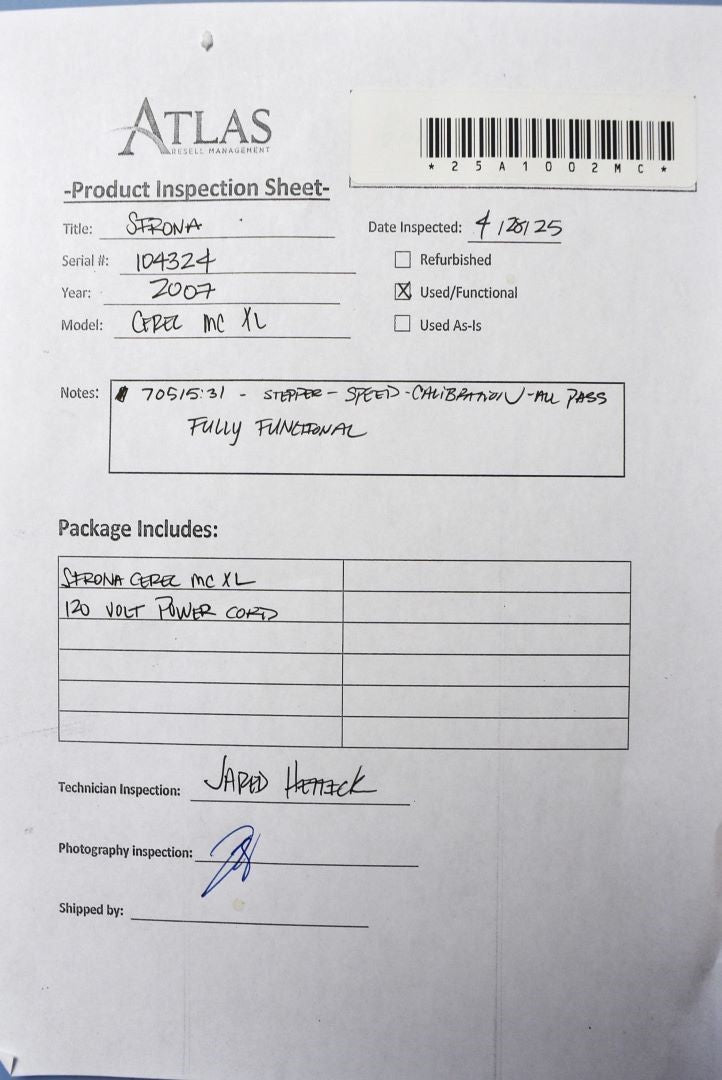 ATLAS
RESELL MANAGEMENT
*25A1002MC*
-Product Inspection Sheet-
Title: SIRONA
Date Inspected: 4/28/25
Serial #: 104324
Refurbished
Year: 2007
X Used/Functional
Model: CEREC MC XL
Used As-Is
Notes: 70515:31 - STEPPER - SPEED - CALIBRATION - ALL PASS
FULLY FUNCTIONAL
Package Includes:
SIRONA CEREC MC XL
120 VOLT POWER CORD
Technician Inspection: JARED
Photography inspection:
Shipped by: